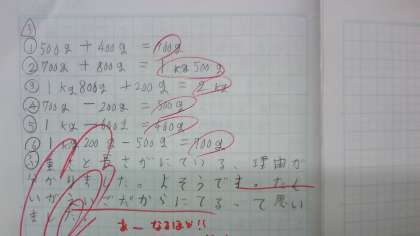 ① 500g + 400g = 900g
② 700g + 800g = 1kg500g
③ 1kg800g + 200g = 2kg
④ 700g - 200g = 500g
⑤ 1kg - 600g = 400g
⑥ 1kg200g - 500g = 700g
重さと長さがにている、理由が
わかりました。よそうです。たし
いかんいでだからにてる、て思い
ました
あーなるほど!!